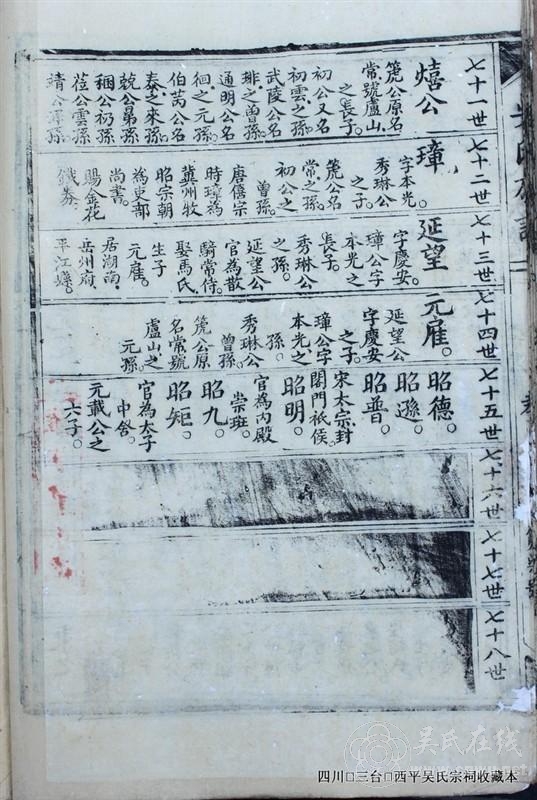 七十一世
熺公
篪公原名
常號盧山
之長子
初公又名
初雲之孫
武陵公名
琲之曾孫
通明公名
徊之元孫
伯萬公名
泰之來孫
兢公晜孫
稇公礽孫
莅公雲孫
靖公耳孫
七十二世
璋
字本光
秀琳公
之子
篪公名
常之孫
初公之
曾孫
唐僖宗
時璋為
冀州牧
昭宗朝
為吏部
尚書
賜金花
鐵券
七十三世
延望
字慶安
璋公字
本光之
長子
秀琳公
之孫
延望公
官為散
騎常侍
娶馬氏
生子
元雇
居湖南
岳州府
平江縣
七十四世
元雇
延望公
字慶安
之子
璋公字
本光之
孫
秀琳公
曾孫
篪公原
名常號
盧山之
元孫
七十五世
昭德
昭遜
昭普
宋太宗封
閣門祗候
昭明
官為內殿
崇班
昭九
昭矩
官為太子
中舍
元載公之
六子
七十六世
七十七世
七十八世
吴氏在线
四川□三台□西平吴氏宗祠收藏本